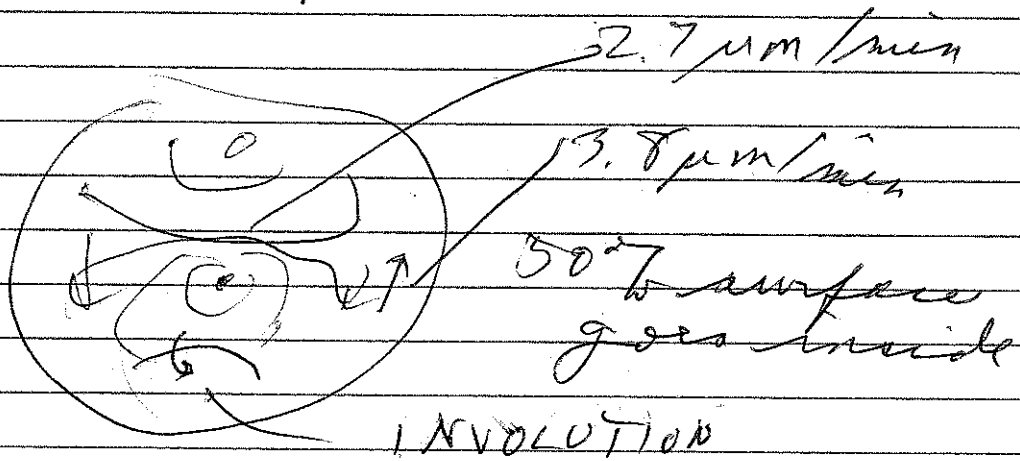 2.7 μm/min
3.8 μm/min
50% surface
goes inside
INVOLUTION